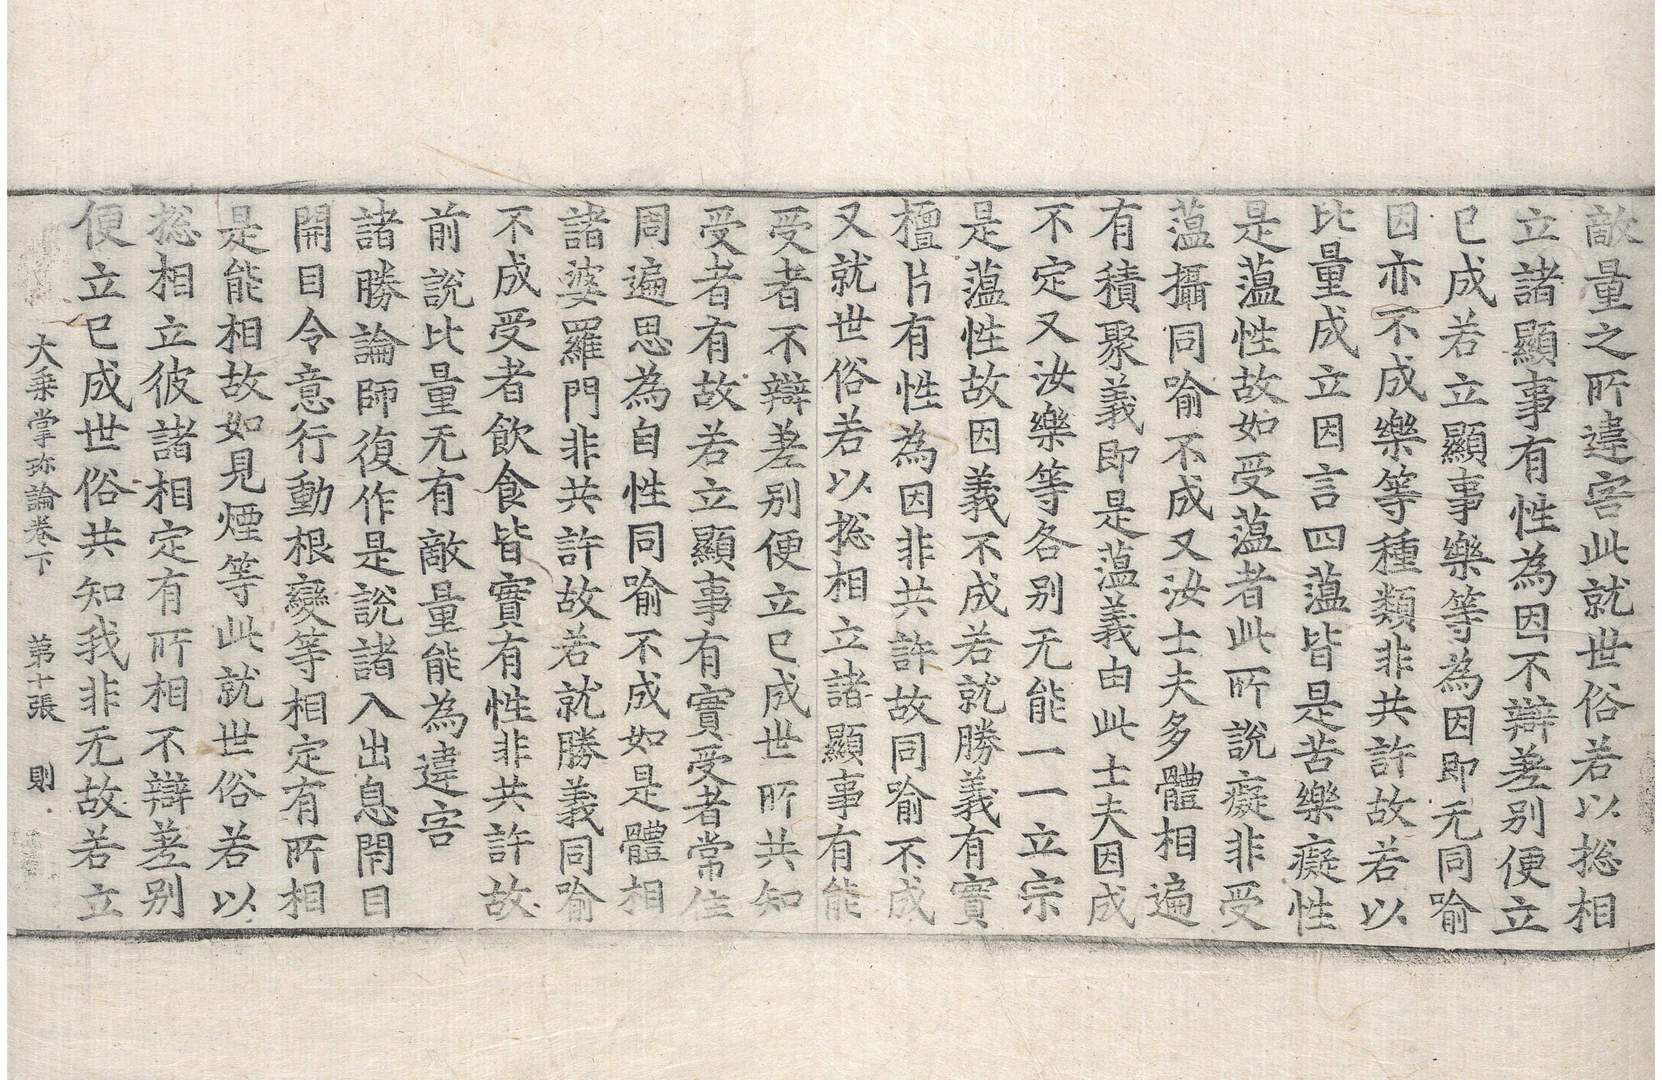 敵量之所違害此就世俗若以捴相
立諸顯事有性為因不辯差別便立
已成若立顯事樂等為因即无同喻
因亦不成樂等種類非共許故若以
比量成立因言四薀皆是苦樂癡性
是薀性故如受薀者此所說癡非受
薀攝同喻不成又汝士夫多體相遍
有積聚義即是薀義由此士夫因成
不定又汝樂等各別无能一一立宗
是薀性故因義不成若就勝義有實
檀片有性為因非共許故同喻不成
又就世俗若以捴相立諸顯事有能
受者不辯差別便立已成世所共知
受者有故若立顯事有實受者常住
周遍思為自性同喻不成如是體相
諸婆羅門非共許故若就勝義同喻
不成受者飲食皆實有性非共許故
前說比量无有敵量能為違害
諸勝論師復作是說諸入出息閇目
開目令意行動根變等相定有所相
是能相故如見煙等此就世俗若以
捴相立彼諸相定有所相不辯差別
便立已成世俗共知我非无故若立
大乘掌珎論卷下 第十張 則